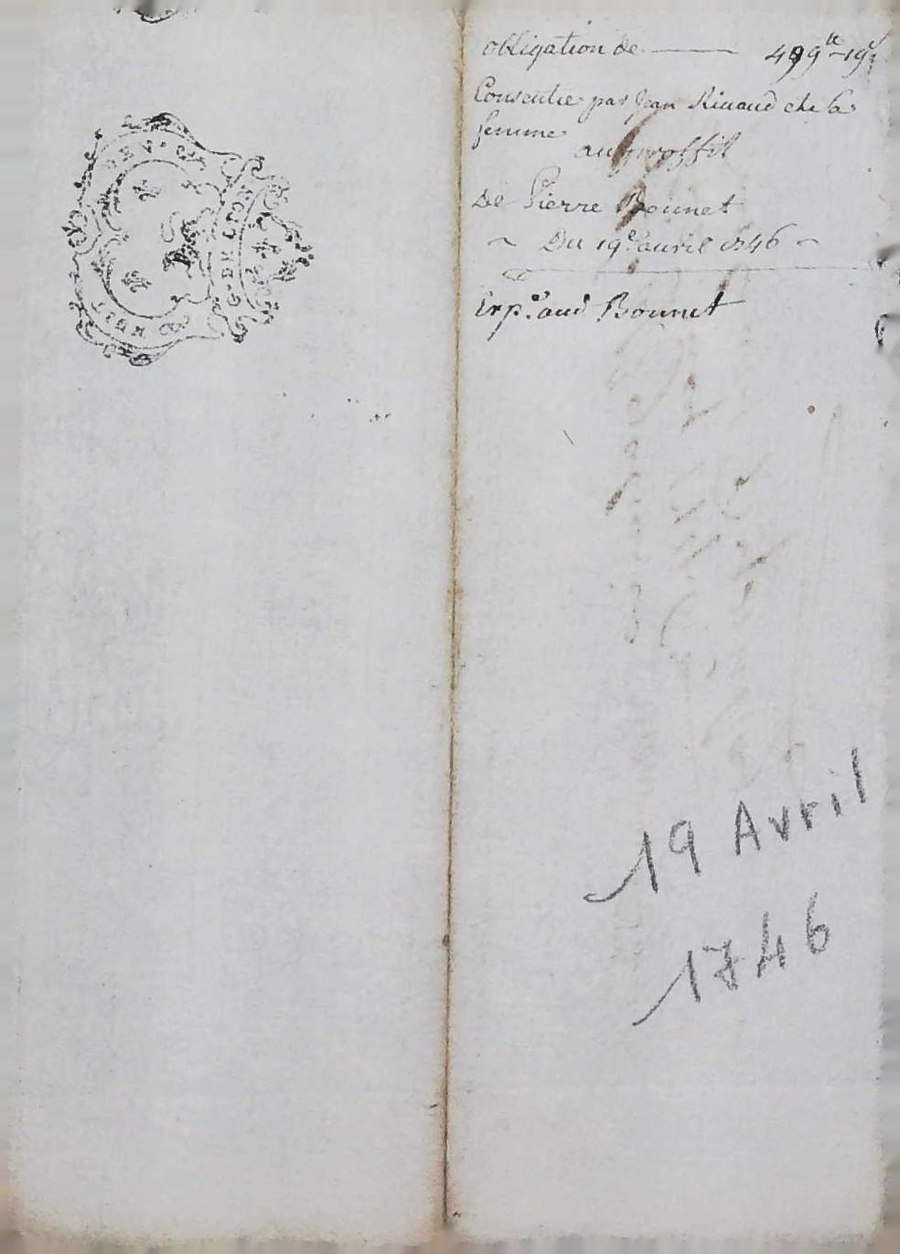 GEN. DE LYON
obligation de —— 499# 19s
Consentie par Jean Rivaud et sa
femme
au proffit
De Pierre Bonnet
~ Du 19e avril 1746 ~
Exp.on aud Bonnet
19 Avril
1746